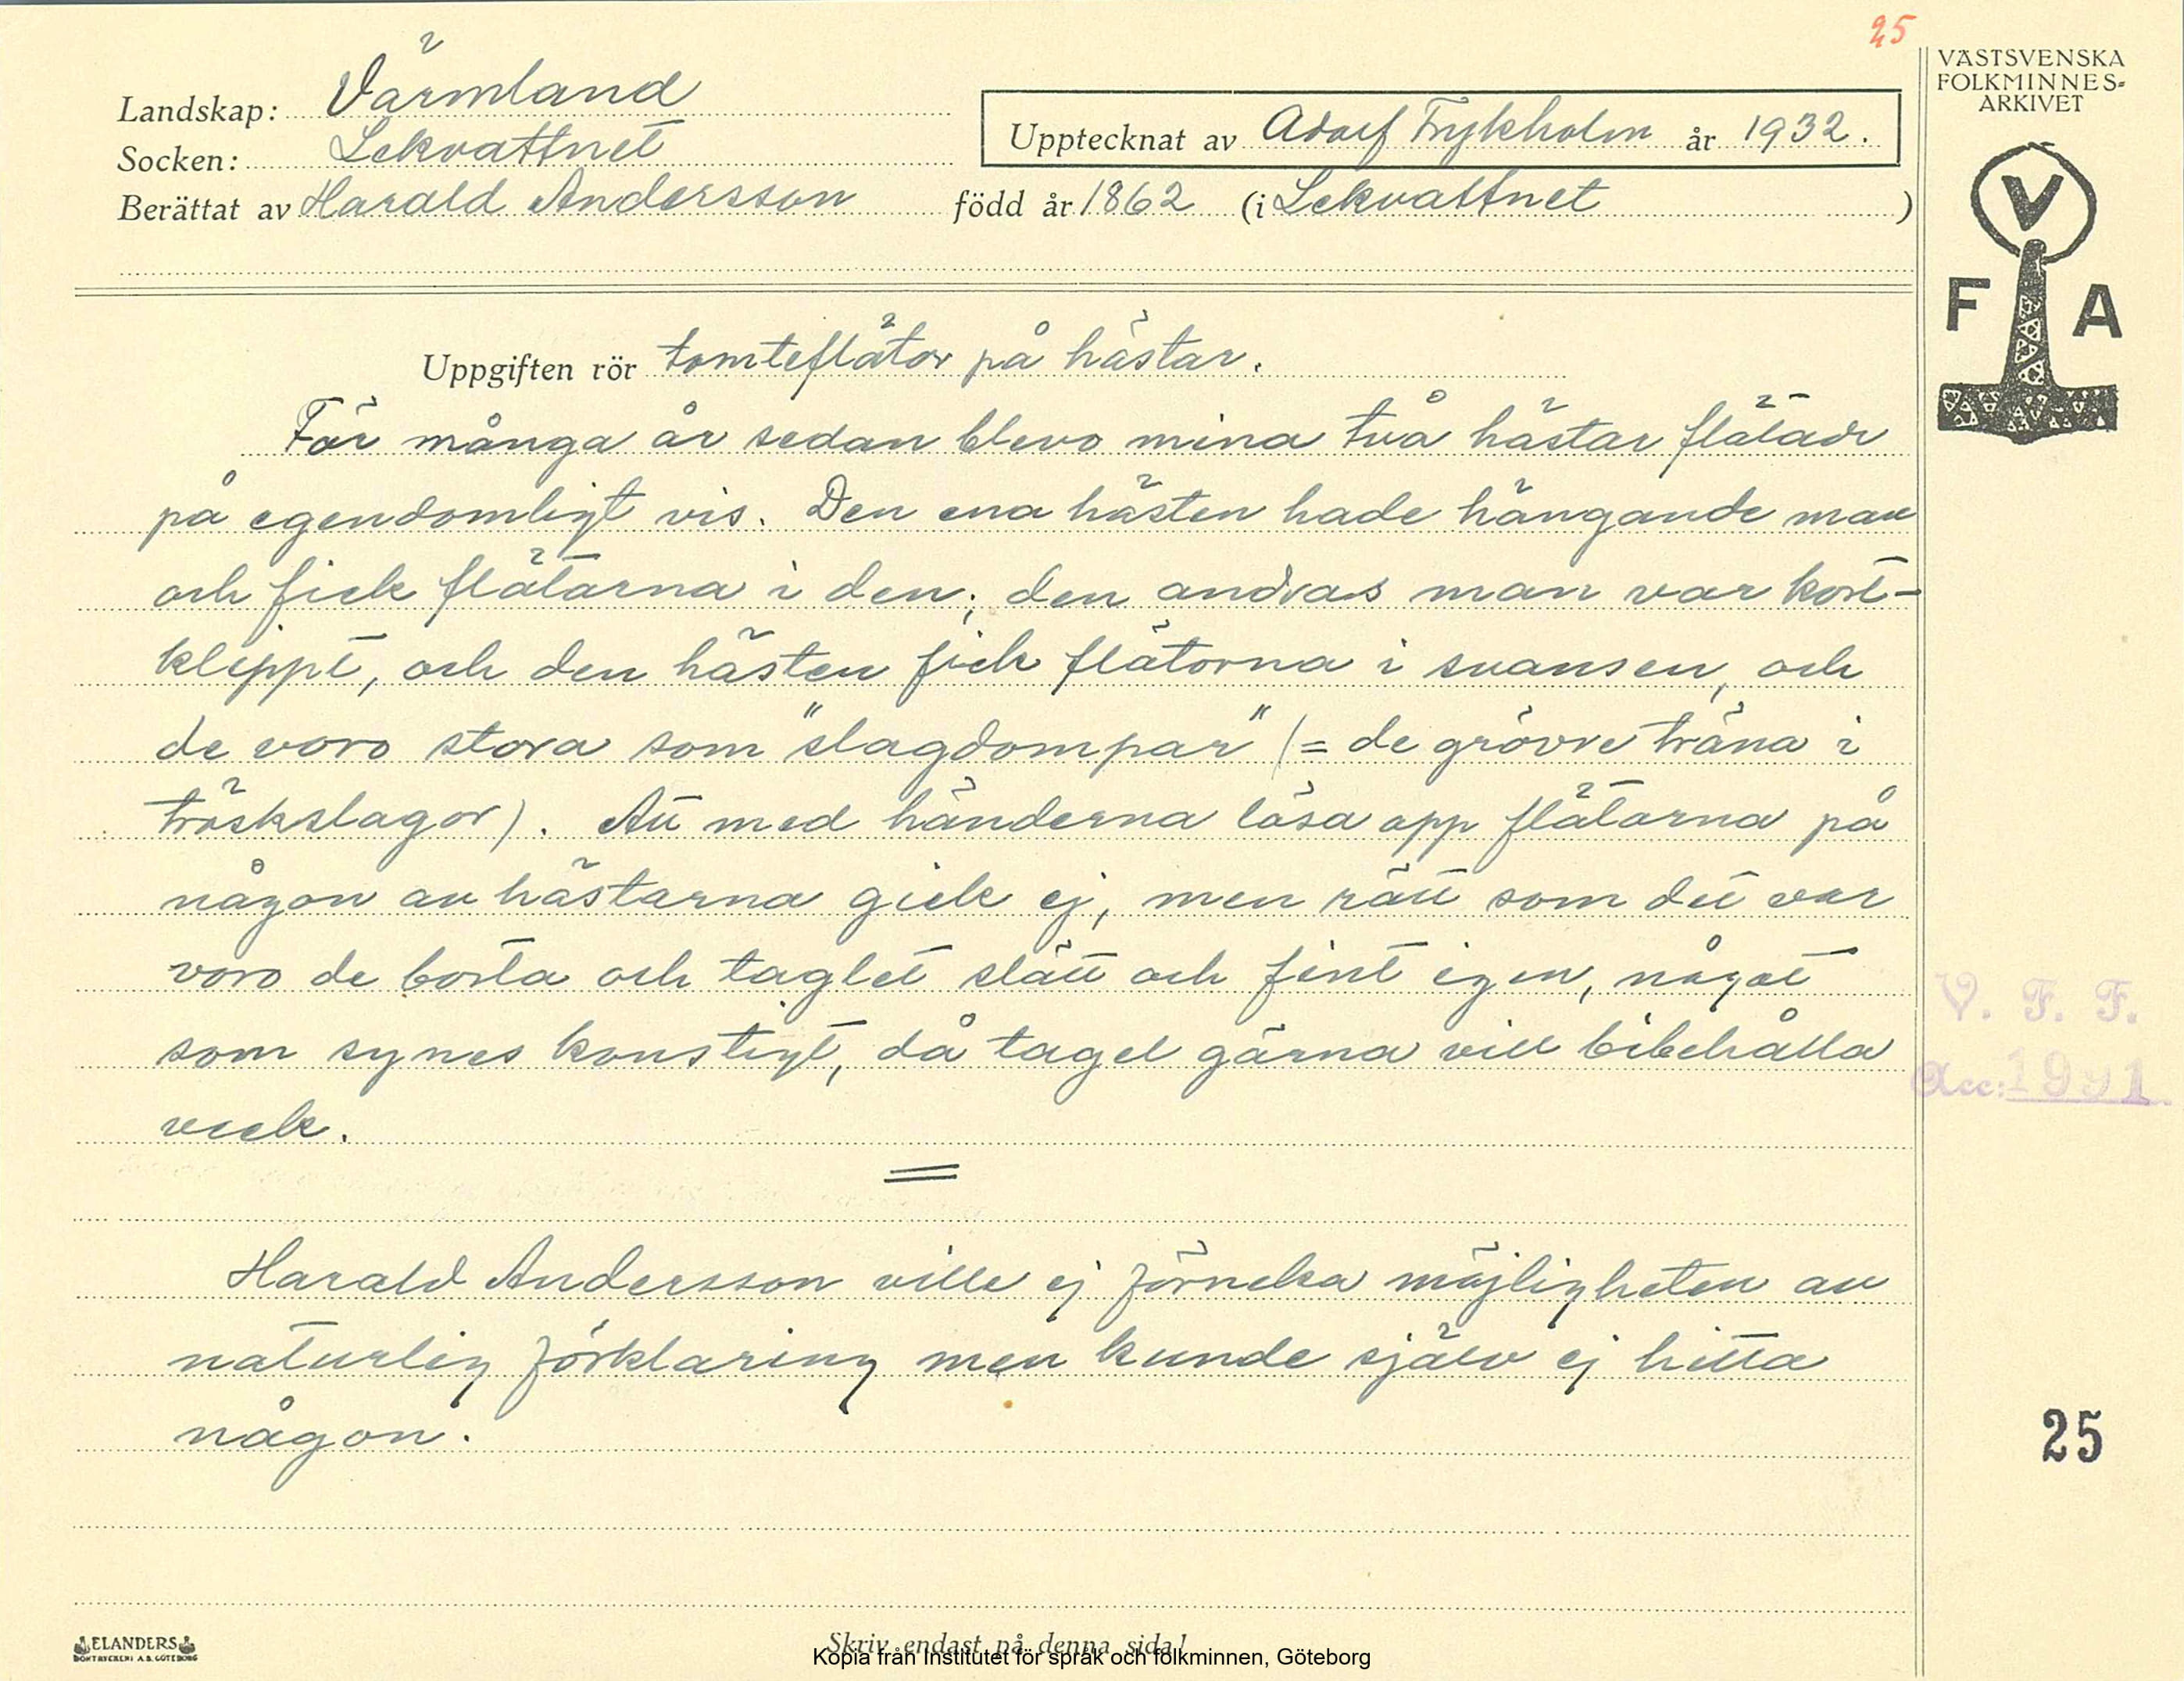 25
VÄSTSVENSKA
FOLKMINNES-
ARKIVET
Landskap: Värmland
Socken: Lekvattnet
Upptecknat av Adolf Frykholm år 1932.
Berättat av Harald Andersson född år 1862 (i Lekvattnet )
V
F A
Uppgiften rör tomteflätor på hästar.
För många år sedan blevo mina två hästar flätade
på egendomligt vis. Den ena hästen hade hängande man
och fick flätorna i den; den andras man var kort-
klippt, och den hästen fick flätorna i svansen, och
de voro stora som "slagdompar" (= de grövre träna i
tröskslagor). Att med händerna lösa opp flätorna på
någon av hästarna gick ej, men rätt som det var
voro de borta och taglet slätt och fint igen, något
som synes konstigt, då tagel gärna vill bibehålla
veck.
V. F. F.
Acc: 1991
Harald Andersson ville ej förneka möjligheten av
naturlig förklaring men kunde själv ej hitta
någon.
25
ELANDERS
BOKTRYCKERI A.B. GÖTEBORG
Skriv endast på denna sida!
Kopia från Institutet för språk och folkminnen, Göteborg